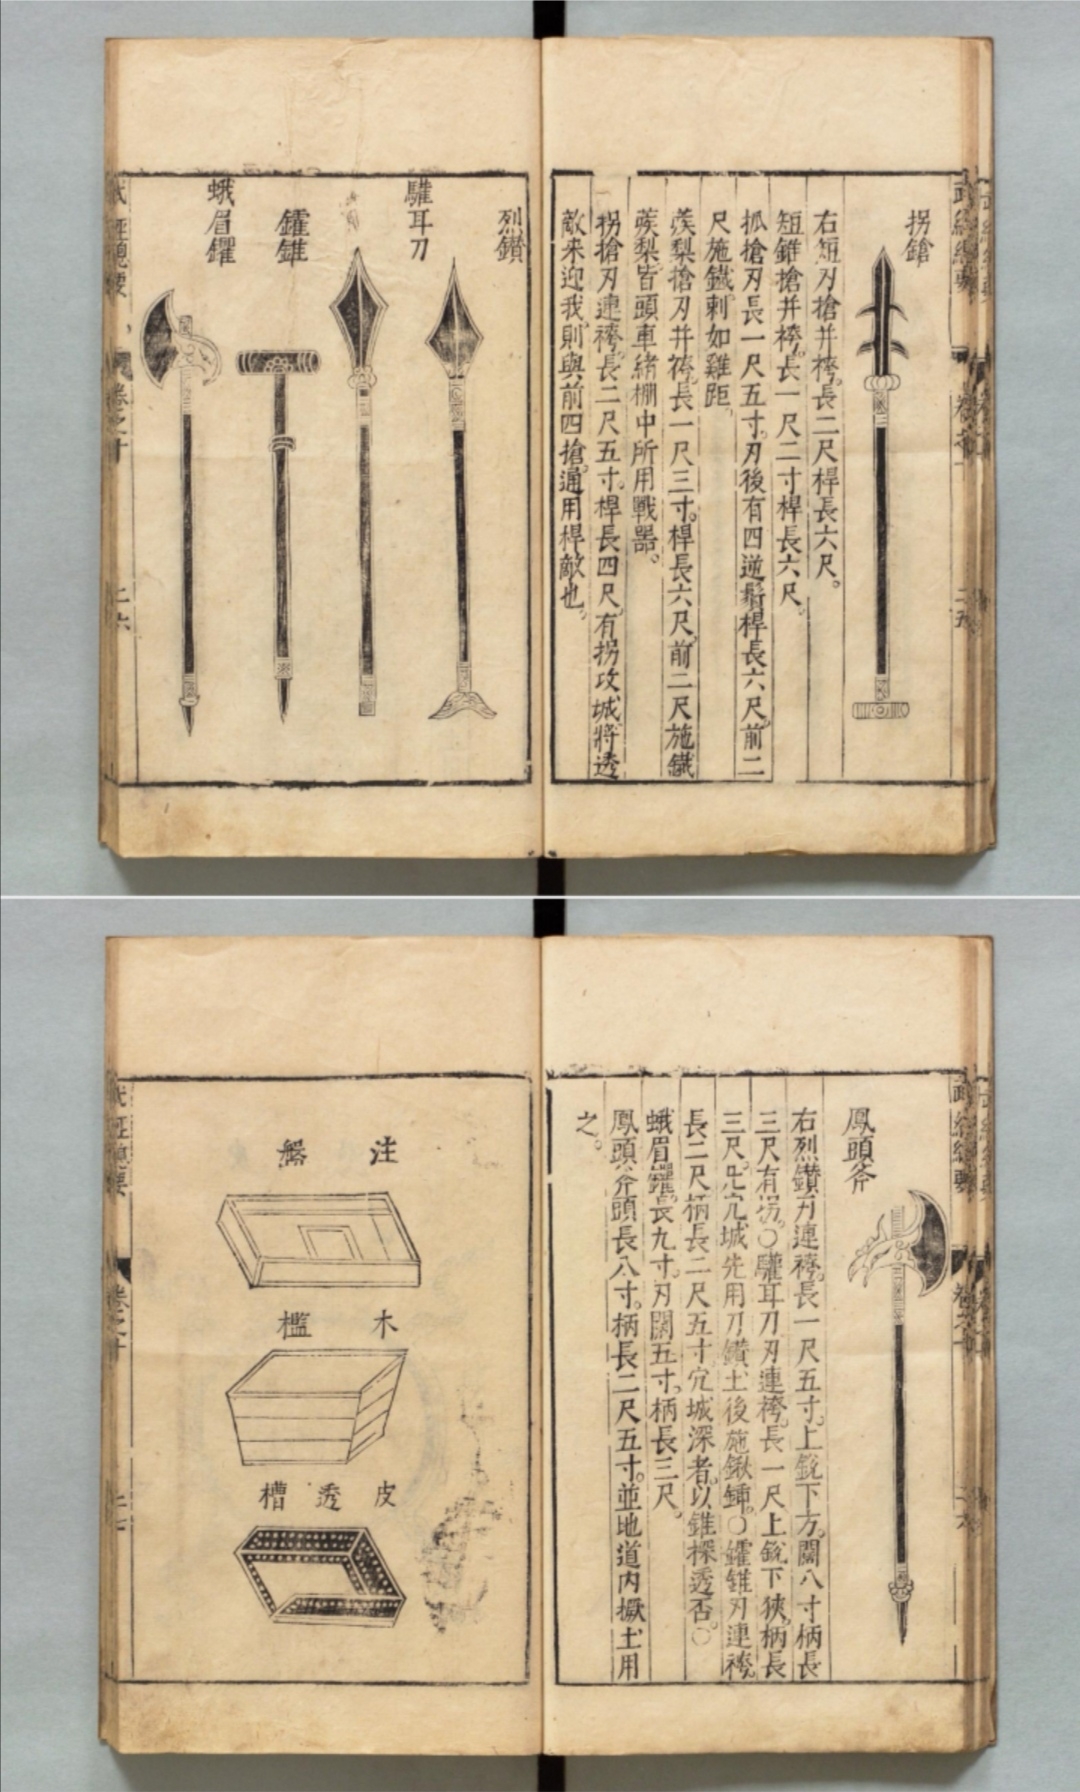 拐鎗
右短刃搶并袴。長二尺桿長六尺。
短錐搶并袴。長一尺二寸桿長六尺。
抓搶刃長一尺五寸。刃後有四逆鬚桿長六尺。前二
尺施鐵刺如雞距。
蒺梨搶刃并袴。長一尺三寸。桿長六尺。前二尺施鐵
蒺梨。皆頭車緒棚中所用戰器。
拐搶刃連袴。長二尺五寸。桿長四尺。有拐攻城將透
敵来迎我。則與前四搶。通用桿敵也。
烈鑽
驩耳刀
鑵錐
蛾眉钁
武經總要
卷之十
二六
鳳頭斧
右烈鑽刃連袴。長一尺五寸。上銳下方。闊八寸柄長
三尺有拐。〇驩耳刀刃連袴。長一尺上銳下狹。柄長
三尺。凡穴城先用刀鑽土後施鍬鍤。〇鑵錐刃連袴。
長二尺柄長二尺五寸穴城深者。以錐探透否。〇
蛾眉钁。長九寸。刃闊五寸。柄長三尺。
鳳頭斧頭長八寸。柄長二尺五寸。並地道内撅土用
之。
注 盤
木 檻
皮 透 槽
武經總要
卷之十
二七